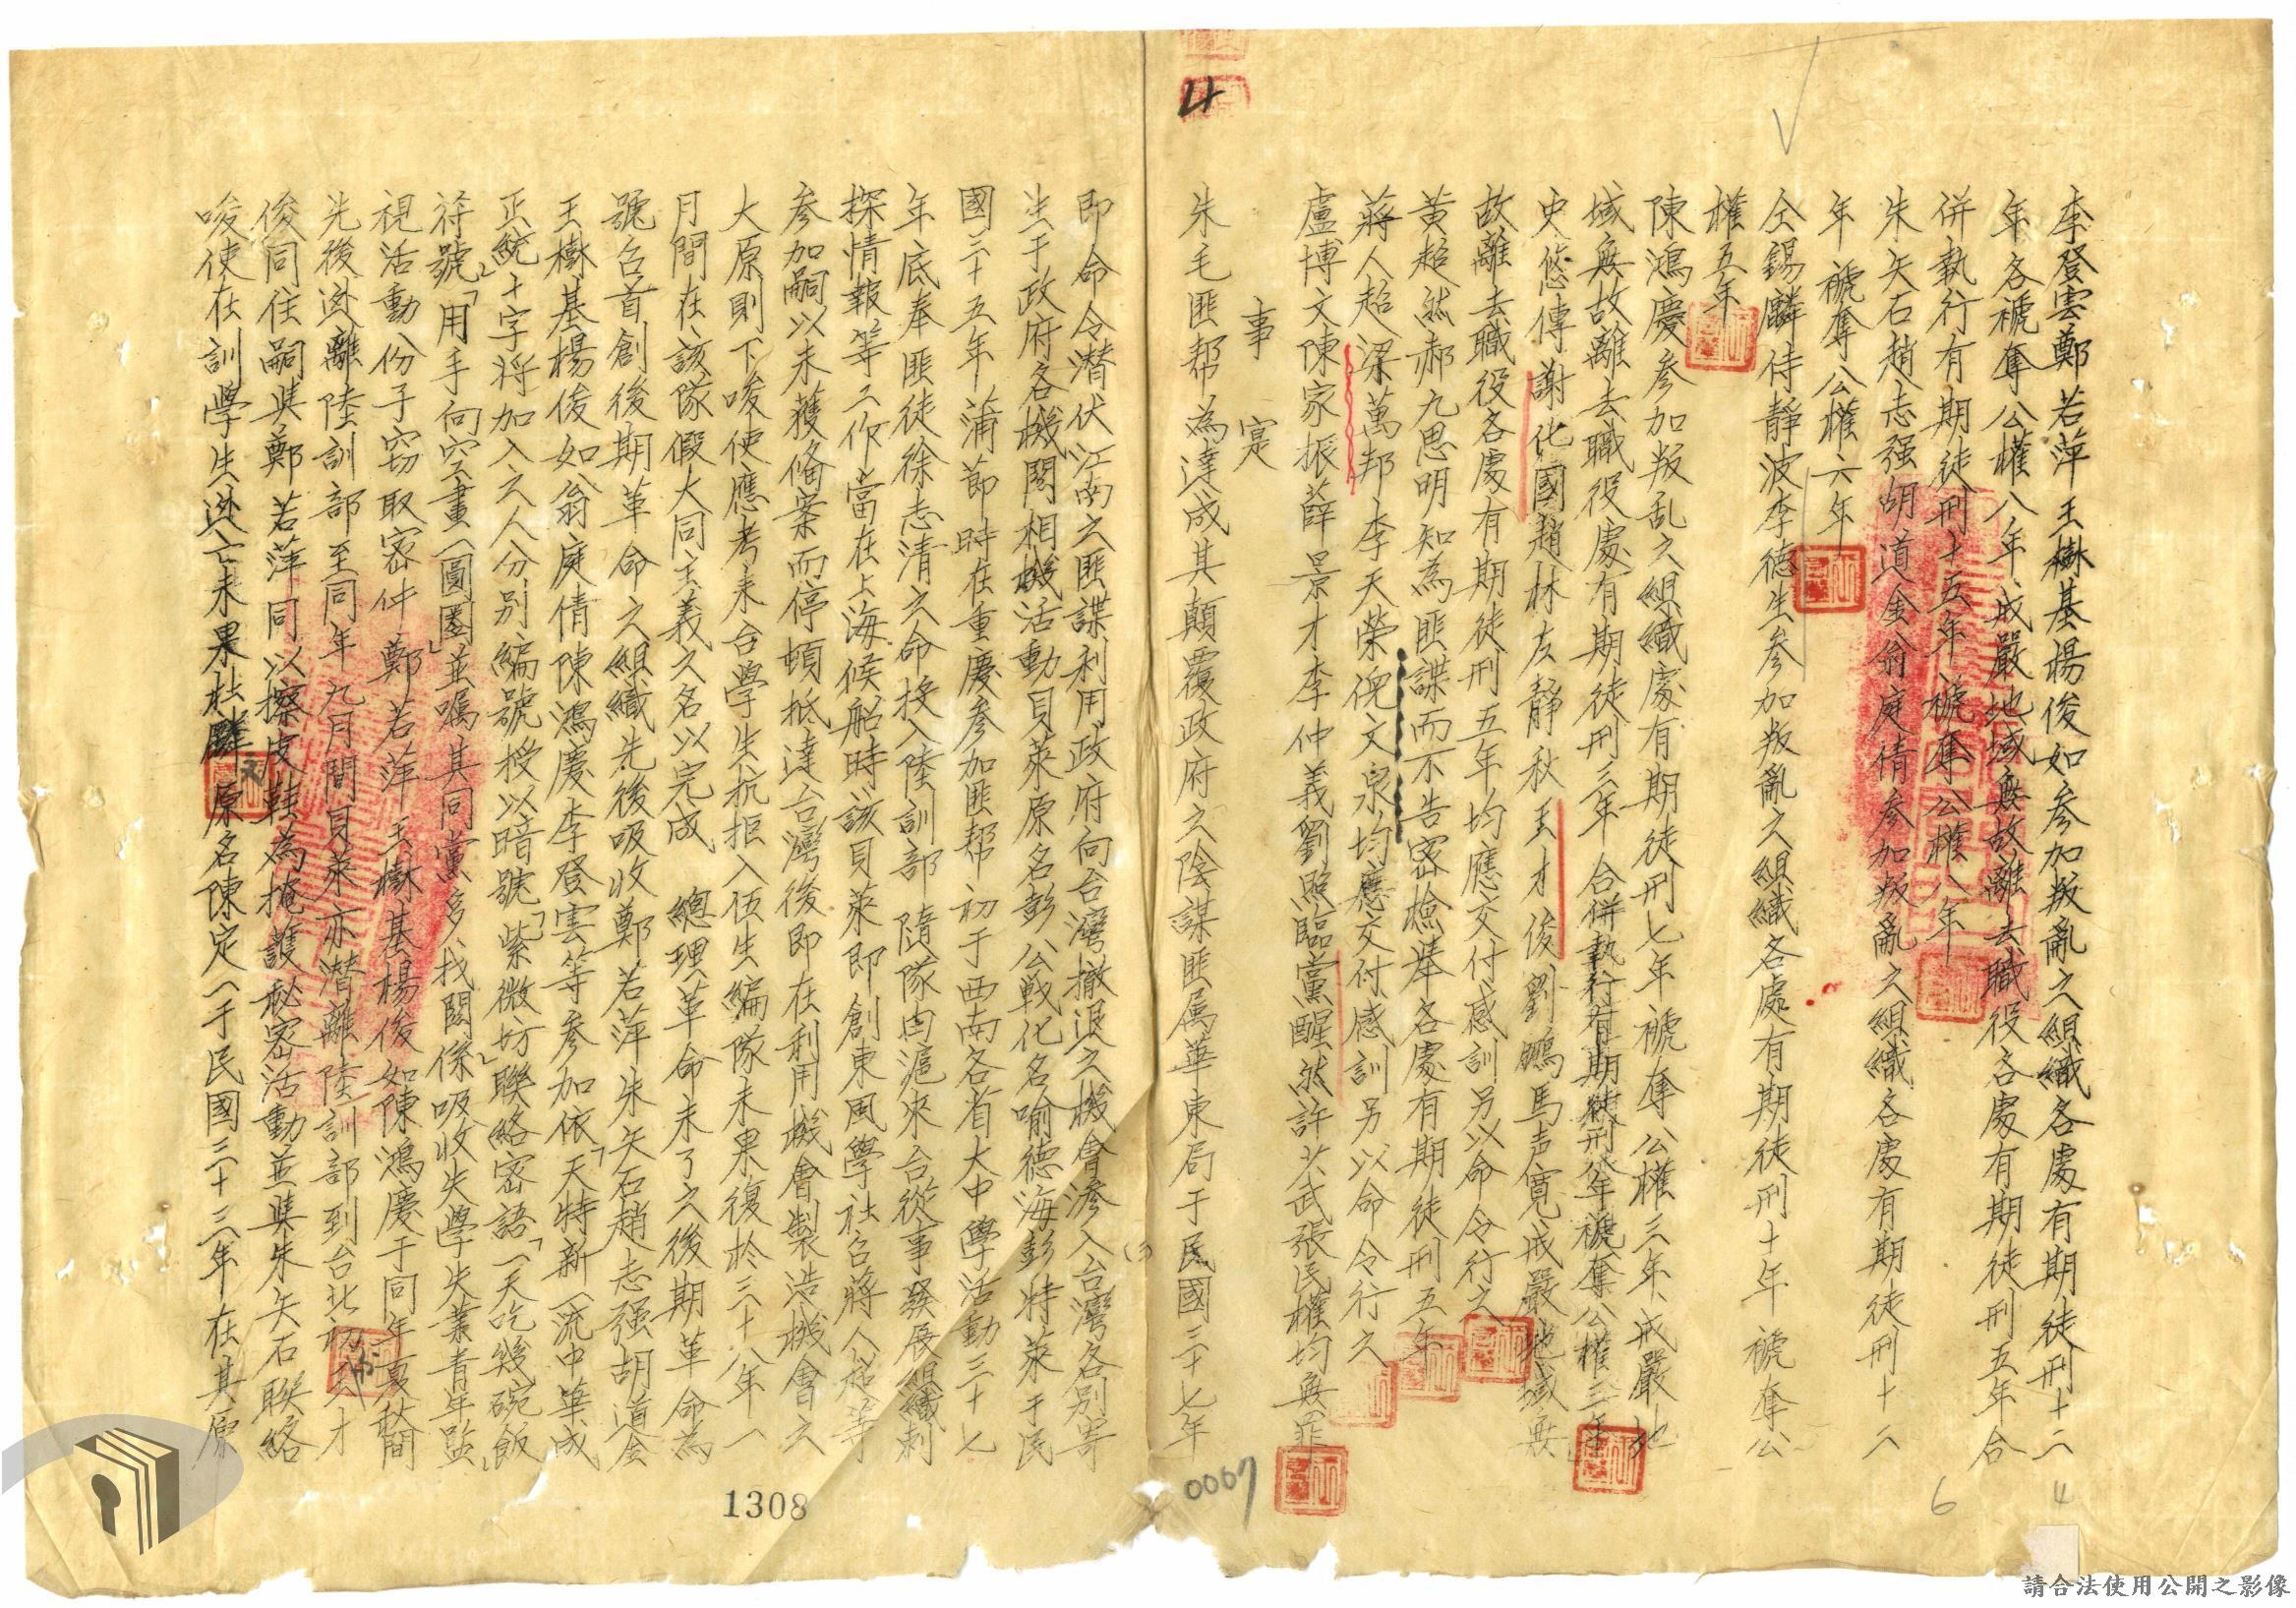 李登雲鄭若萍王樹基楊俊如參加叛亂之組織各處有期徒刑十二
年各褫奪公權八年戒嚴地域無故離去職役各處有期徒刑五年合
併執行有期徒刑十五年褫奪公權八年
朱矢石趙志强胡道金翁庭倩參加叛亂之組織各處有期徒刑十二
年褫奪公權六年
仝錫麟侍靜波李德生參加叛亂之組織各處有期徒刑十年褫奪公
權五年
陳鴻慶參加叛乱之組織處有期徒刑七年褫奪公權三年戒嚴地
域無故離去職役處有期徒刑三年合併執行有期徒刑年褫奪公權三年
史悠傳謝化國趙林友靜秋王才俊劉鵬馬声寬戒嚴地域無
故離去職役各處有期徒刑五年均應交付感訓另以命令行之
黃超然郝九思明知為匪諜而不告密檢舉各處有期徒刑五年
蔣人超梁萬邦李天榮倪文泉均應交付感訓另以命令行之
盧博文陳家振薛景才李仲義劉照臨黨醒然許共武張民權均無罪
事實
朱毛匪帮為達成其顛覆政府之陰謀匪属華東局于民國三十七年
4
0067
6
4
即命令潛伏江南之匪諜利用政府向台灣撤退之機會滲入台灣各別寄
生于政府各機關相機活動貝萊原名彭公戰化名喻德海彭特萊于民
國三十五年蒲節時在重慶參加匪帮初于西南各省大中學活動三十七
年底奉匪徒徐志清之命投入陸訓部隨隊由滬來台從事發展組織刺
探情報等工作當在上海候船時該貝萊即創東風學社召蔣人超等
參加嗣以未獲備案而停頓抵達台灣後即在利用機會製造機會之
大原則下唆使應考來台學生抗拒入伍生編隊未果復於三十八年一
月間在該隊假大同主義之名以完成　總理革命未了之後期革命為
號召首創後期革命之組織先後吸收鄭若萍朱矢石趙志强胡道金
王樹基楊俊如翁庭倩陳鴻慶李登雲等參加依「天特新一流中華成
正統」十字將加入之人分別編號授以暗號「紫微坊」聯絡密語「一天吃幾碗飯」
符號「用手向空畫一圓圈」並囑其同黨多找關係吸收失學失業青年監
視活動份子窃取密件鄭若萍王樹基楊俊如陳鴻慶于同年夏秋間
先後逃離陸訓部至同年九月間貝萊亦潛離陸訓部到台北初王才
俊同住嗣與鄭若萍同以擦皮鞋為掩護秘密活動並與朱矢石聯絡
唆使在訓學生逃亡未果杜麟原名陳定一于民國三十三年在其原
1308
請合法使用公開之影像